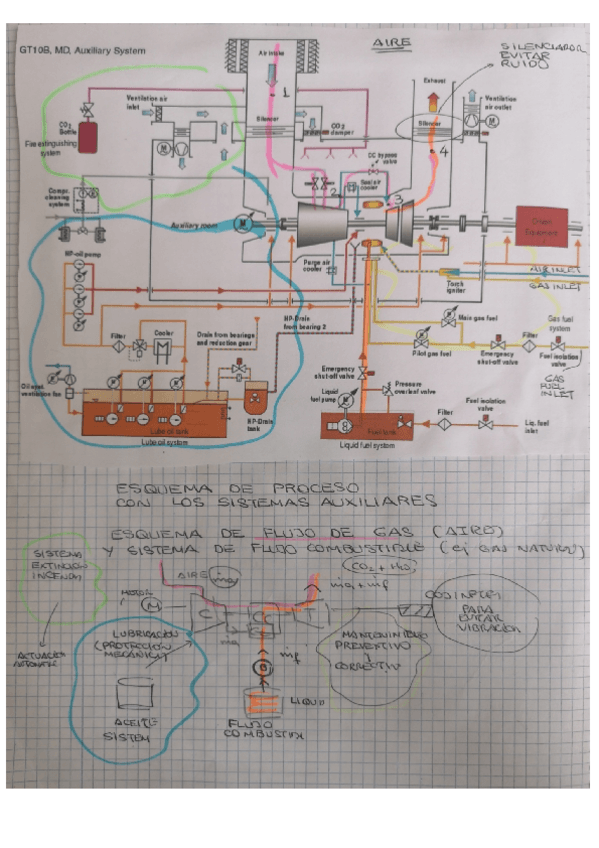 GT10B, MD, Auxiliary System
AIRE
SILENCIADOR
EVITAR
RUIDO
Air intake
1
Exhaust
Ventilation air
inlet
Ventilation
air outlet
CO2
Bottle
Fire extinguishing
system
Silencer
CO2
damper
Silencer
4
CC bypass
valve
Seal air
cooler
2
3
Compr.
cleaning
system
Auxiliary room
Driven
Equipment
Purge air
cooler
AIR INLET
GAS INLET
Torch
igniter
HP-oil pump
Main gas fuel
Gas fuel
system
HP-Drain
from bearing 2
Filter
Cooler
Drain from bearings
and reduction gear
Pilot gas fuel
Emergency
shut-off valve
Filter
Fuel isolation
valve
GAS
FUEL
INLET
Oil mist
ventilation fan
Emergency
shut-off valve
Liquid
fuel pump
Pressure
overload valve
Fuel isolation
valve
Filter
Liq. fuel
inlet
HP-Drain
tank
Lube oil tank
Lube oil system
Fuel tank
Liquid fuel system
ESQUEMA DE PROCESO
CON LOS SISTEMAS AUXILIARES
ESQUEMA DE FLUJO DE GAS (AIRE)
Y SISTEMA DE FLUJO COMBUSTIBLE (ej GAS NATURAL)
SISTEMA
EXTINCIÓN
INCENDIO
AIRE ṁa
(CO2 + H2O)
ṁa + ṁf
MOTOR
M
C
CC
T
COJINETES
PARA
EVITAR
VIBRACIÓN
ACTUACIÓN
AUTOMÁTICA
LUBRICACIÓN
(PROTECCIÓN
MECÁNICA)
ṁa
ṁf
MANTENIMIENTO
PREVENTIVO
Y
CORRECTIVO
B
LIQUIDO
ACEITE
SISTEM
FLUJO
COMBUSTIBLE